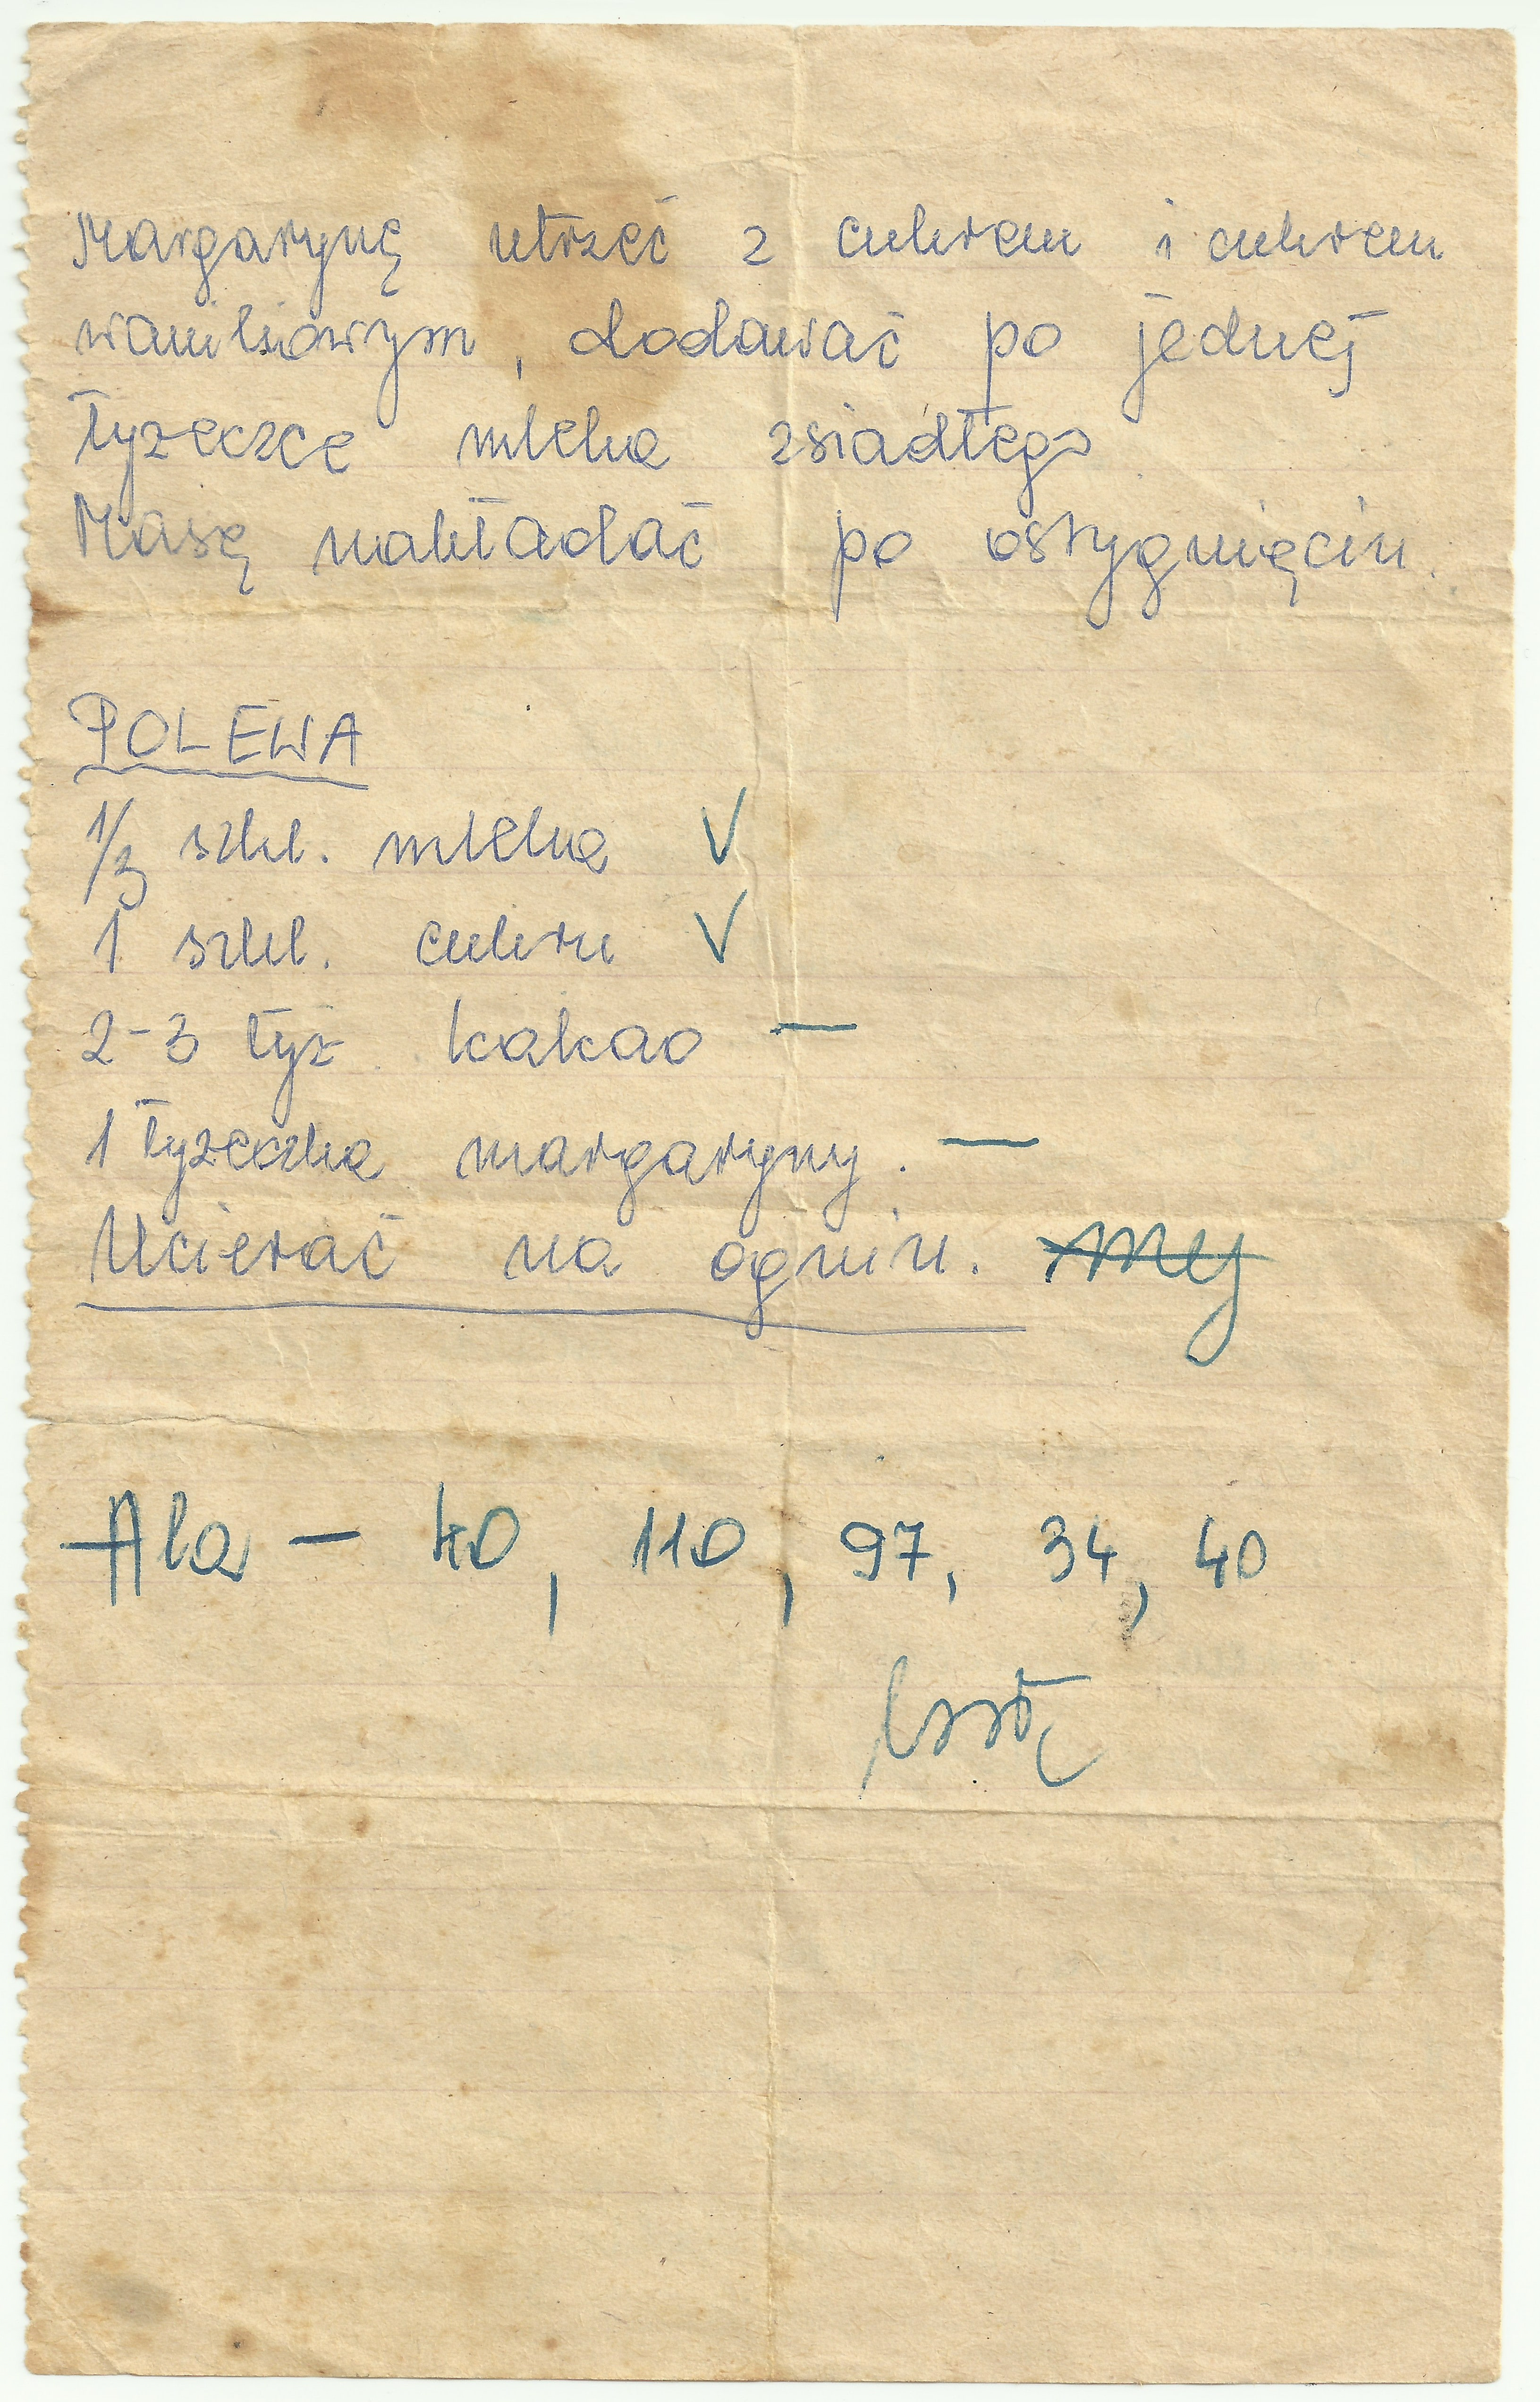 Margarynę utrzeć z cukrem i cukrem
waniliowym, dodawać po jednej
łyżeczce mleka zsiadłego
Masę nakładać po ostygnięciu.
POLEWA
1/3 szkl. mleka V
1 szkl. cukru V
2-3 łyż. kakao —
1 łyżeczka margaryny. —
Ucierać na ogniu. my
Ala — 40, 110, 97, 34, 40